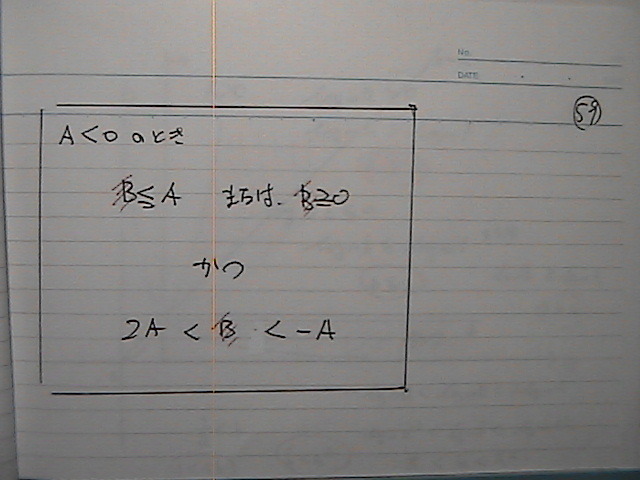 No.
DATE
59
A<0のとき
B≦A または、B≧0
かつ
2A < B < -A